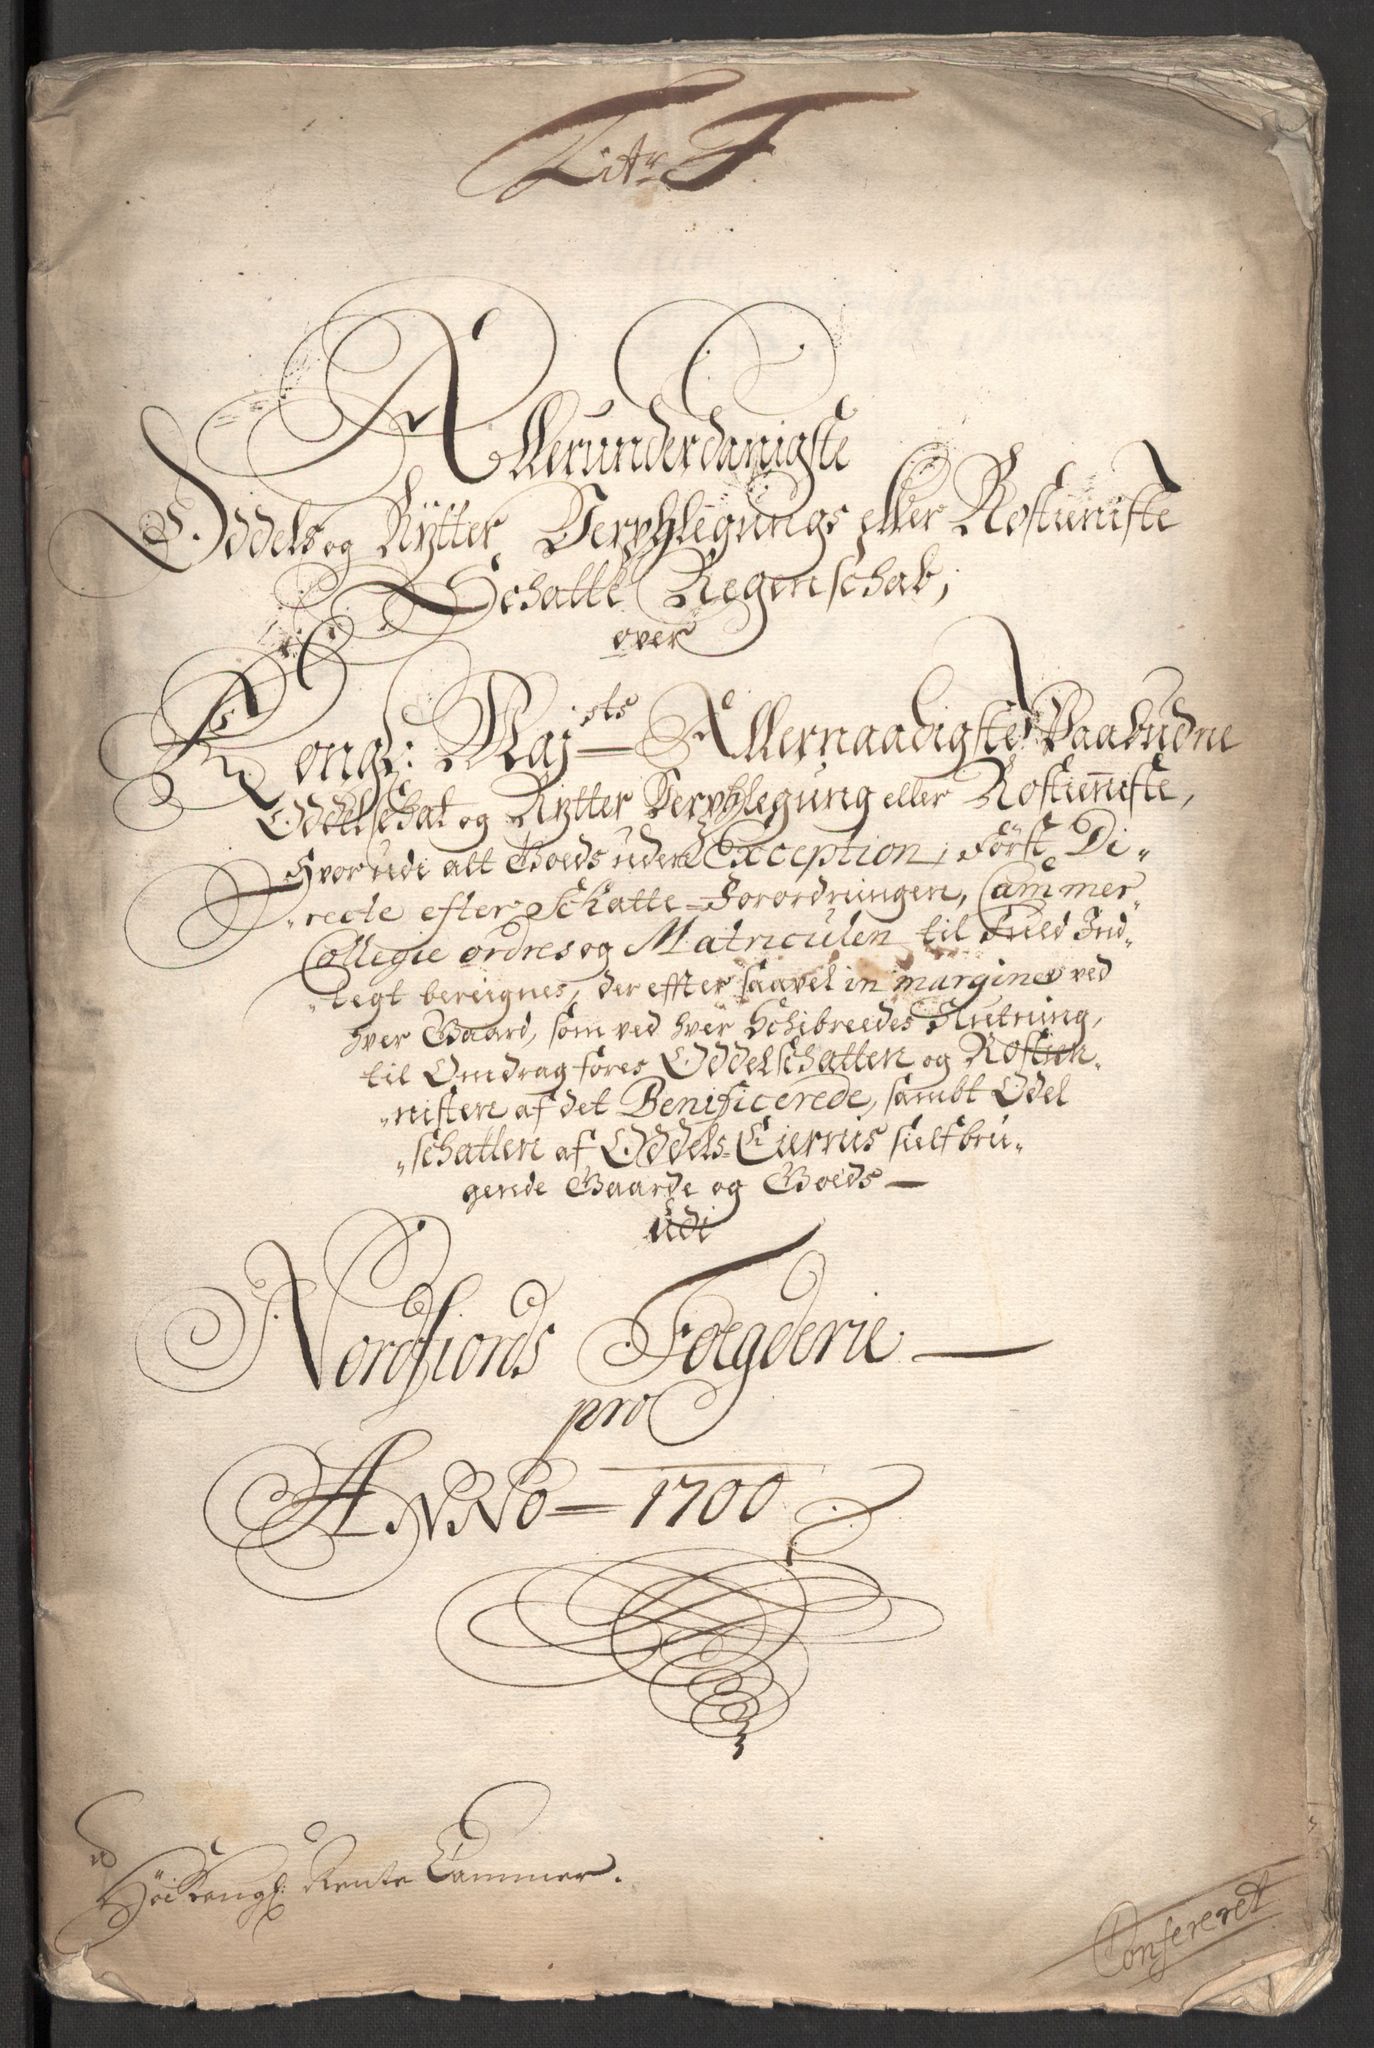 Litr F
Allerunderdanigste
Oddels og Rytter Verphlegungs eller Rostieniste
Schatte Regenschab,
over
Kongl: Majsts Allernaadigste Paabudne
Oddelschat og Rytter Verphlegung eller Rostienniste,
Hvorudi alt Goeds uden Exception, Först Di-
recte efter Schatte-Forordningen, Cammer-
Collegie ordres og Matriculen til Fuld Ind-
tegt beregnes, der effter saavel in margine ved
hver Gaard, som ved hver Schibreedes Slutning,
til Omdrag föres Oddelschatten og Rostien-
nisten af det Benificerede, sambt Odel
schatten af Oddels-Eiernis sielfbru-
gende Gaarde og Goeds
udi
Nordfiords Foegderie
pro
Anno 1700
Höi Kongl: Rente Cammer.
Confereret